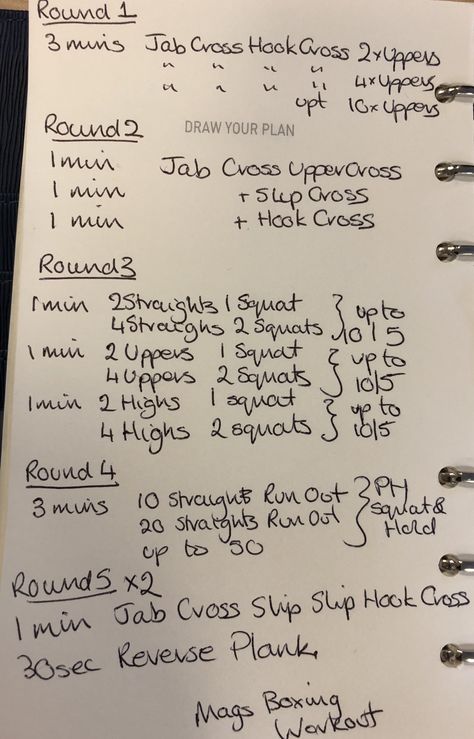 Round 1
3 mins Jab Cross Hook Cross 2x Uppers
" " " " 4x Uppers
" " " " upt 10x Uppers
Round 2 DRAW YOUR PLAN
1 min Jab Cross Upper Cross
1 min + Slip Cross
1 min + Hook Cross
Round 3
1 min 2 Straights 1 Squat } up to
4 Straighs 2 Squats } 10/5
1 min 2 Uppers 1 Squat } up to
4 Uppers 2 Squats } 10/5
1 min 2 Highs 1 squat } up to
4 Highs 2 squats } 10/5
Round 4
3 mins 10 Straights Run Out } PH
20 Straights Run Out } Squat &
up to 50 Hold
Round 5 x2
1 min Jab Cross Slip Slip Hook Cross
30sec Reverse Plank.
Mags Boxing
Workout